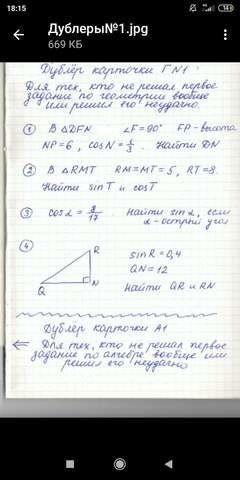 18:15
14
Дублеры№1.jpg
669 КБ
Дублёр карточки Г N1
Для тех, кто не решал первое
задание по геометрии вообще
или решил его неудачно.
① В △DFN ∠F=90° FP-высота
NP=6, cosN=1/3. Найти DN
② В △RMT RM=MT=5, RT=8.
Найти sinT и cosT
③ cosα=8/17. Найти sinα, если
α-острый угол
④
R
sinR=0,4
QN=12
Q N
Найти QR и RN
Дублёр карточки А1
Для тех, кто не решал первое
задание по алгебре вообще или
решил его неудачно